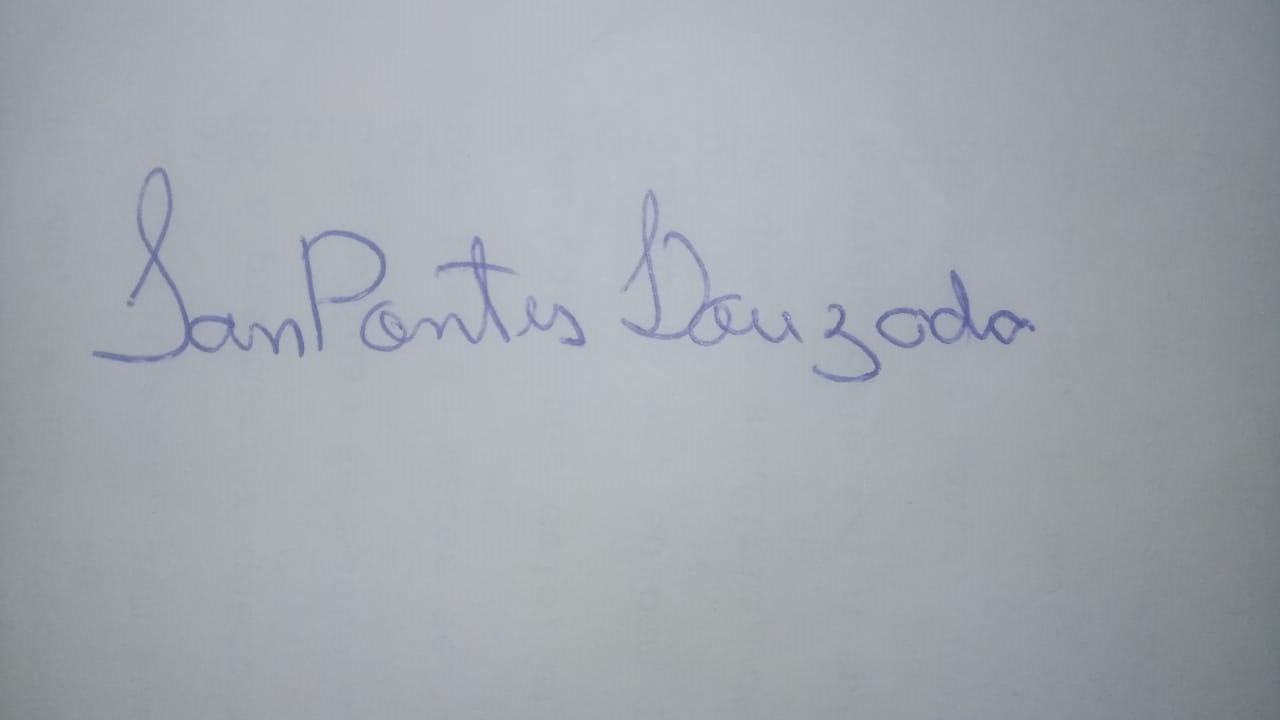 SanPontes Douzada